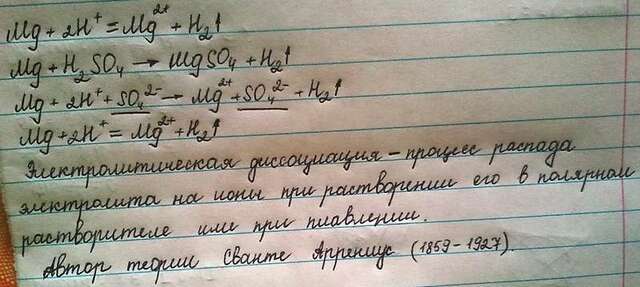 Mg + 2H⁺ = Mg²⁺ + H₂↑
Mg + H₂SO₄ → MgSO₄ + H₂↑
Mg + 2H⁺ + SO₄²⁻ → Mg²⁺ + SO₄²⁻ + H₂↑
Mg + 2H⁺ = Mg²⁺ + H₂↑
Электролитическая диссоциация – процесс распада
электролита на ионы при растворении его в полярном
растворителе или при плавлении.
Автор теории Сванте Аррениус (1859 – 1927).